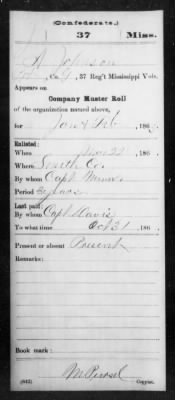 J (Confederate.) 37 Miss.
A Johnson
, 37 Reg't Mississippi Vols.
Appears on
Company Muster Roll
of the organization named above,
for Jan & Feb , 186
Enlisted:
When , 186
Where Smith Co
By whom Capt
Period 3 years
Last paid:
By whom Capt Davis
To what time Oct 31 , 186
Present or absent Present
Remarks:
Book mark:
(642) Copyist.